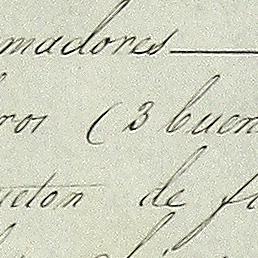 madores
ros (3 buen
ueton de f